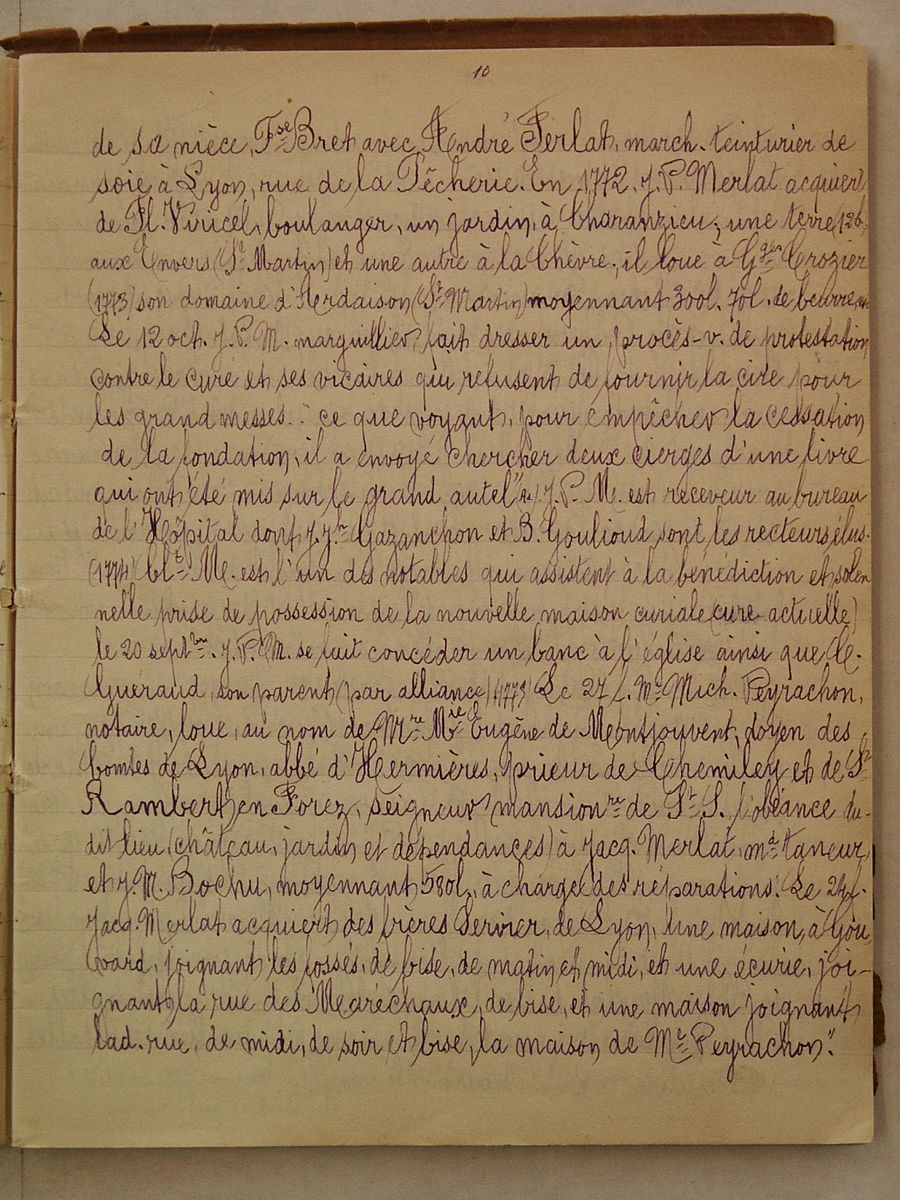 10
de sa nièce, Fse Bret avec André Ferlat, march. teinturier de
soie à Lyon, rue de la Pêcherie. En 1772, J. P. Merlat acquiert
de Fl. Viricel, boulanger, un jardin, à Charanzieu, une terre, 12 b.
aux Envers (St Martin) et une autre à la Chèvre; il loue à Gges Crozier
(1773) son domaine d'Herdaison (St Martin) moyennant 300 l. 70 l. de beurre
Le 12 oct. J. P. M. marguillier, fait dresser un procès-v. de protestation
contre le curé et ses vicaires qui refusent de fournir la cire pour
les grand messes.. " ce que voyant, pour empêcher la cessation
de la fondation, il a envoyé chercher deux cierges d'une livre
qui ont été mis sur le grand autel" J. P. M. est receveur au bureau
de l'Hôpital dont J. J. Gazanchon et B. Goulioud sont les recteurs élus.
(1774) Clt M. est l'un des notables qui assistent à la bénédiction et solen
nelle prise de possession de la nouvelle maison curiale (cure actuelle)
le 20 septbre. J. P. M. se fait concéder un banc à l'église ainsi que C.
Gueraud, son parent (par alliance) (1775) Le 27 f. Me Mich. Peyrachon,
notaire, loue, au nom de Mre Mre Eugène de Montjouvent, doyen des
Comtes de Lyon, abbé d'Hermières, prieur de Chemiley et de St
Rambert en Forez, seigneur mansionre de St S. l'obéance du-
dit lieu (château, jardin et dépendances) à Jacq. Merlat, md taneur,
et J. M. Bochu, moyennant 580 l. à charge des réparations. Le 24 f.
Jacq. Merlat acquiert des frères Servier, de Lyon, "une maison, à Gou
vard, joignant les fossés, de bise, de matin et midi, et une écurie, joi-
gnant la rue des Maréchaux, de bise, et une maison joignant
lad. rue, de midi, de soir et bise, la maison de Me Peyrachon".